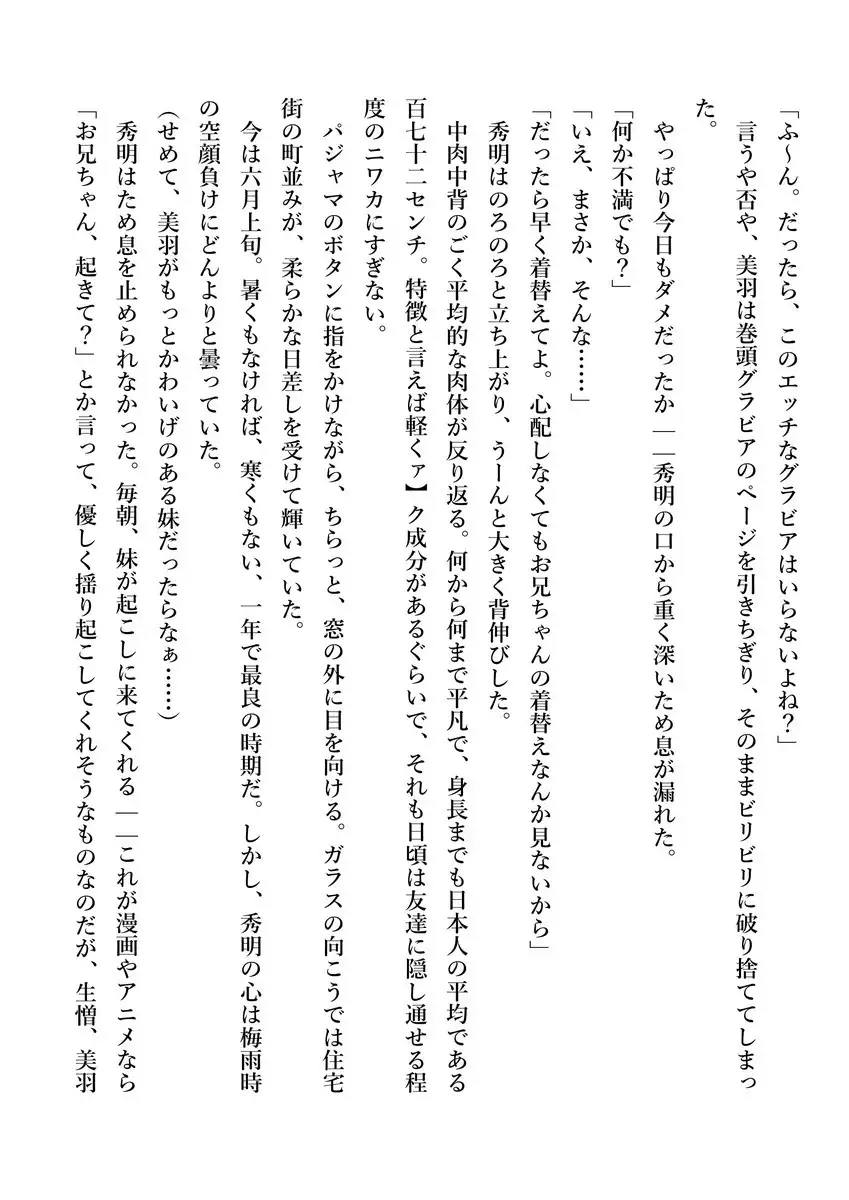 「ふ～ん。だったら、このエッチなグラビアはいらないよね？」
言うや否や、美羽は巻頭グラビアのページを引きちぎり、そのままビリビリに破り捨ててしまっ
た。
やっぱり今日もダメだったか――秀明の口から重く深いため息が漏れた。
「何か不満でも？」
「いえ、まさか、そんな……」
「だったら早く着替えてよ。心配しなくてもお兄ちゃんの着替えなんか見ないから」
秀明はのろのろと立ち上がり、うーんと大きく背伸びした。
中肉中背のごく平均的な肉体が反り返る。何から何まで平凡で、身長までも日本人の平均である
百七十二センチ。特徴と言えば軽くァ】ク成分があるぐらいで、それも日頃は友達に隠し通せる程
度のニワカにすぎない。
パジャマのボタンに指をかけながら、ちらっと、窓の外に目を向ける。ガラスの向こうでは住宅
街の町並みが、柔らかな日差しを受けて輝いていた。
今は六月上旬。暑くもなければ、寒くもない、一年で最良の時期だ。しかし、秀明の心は梅雨時
の空顔負けにどんよりと曇っていた。
（せめて、美羽がもっとかわいげのある妹だったらなぁ……）
秀明はため息を止められなかった。毎朝、妹が起こしに来てくれる――これが漫画やアニメなら
「お兄ちゃん、起きて？」とか言って、優しく揺り起こしてくれそうなものなのだが、生憎、美羽